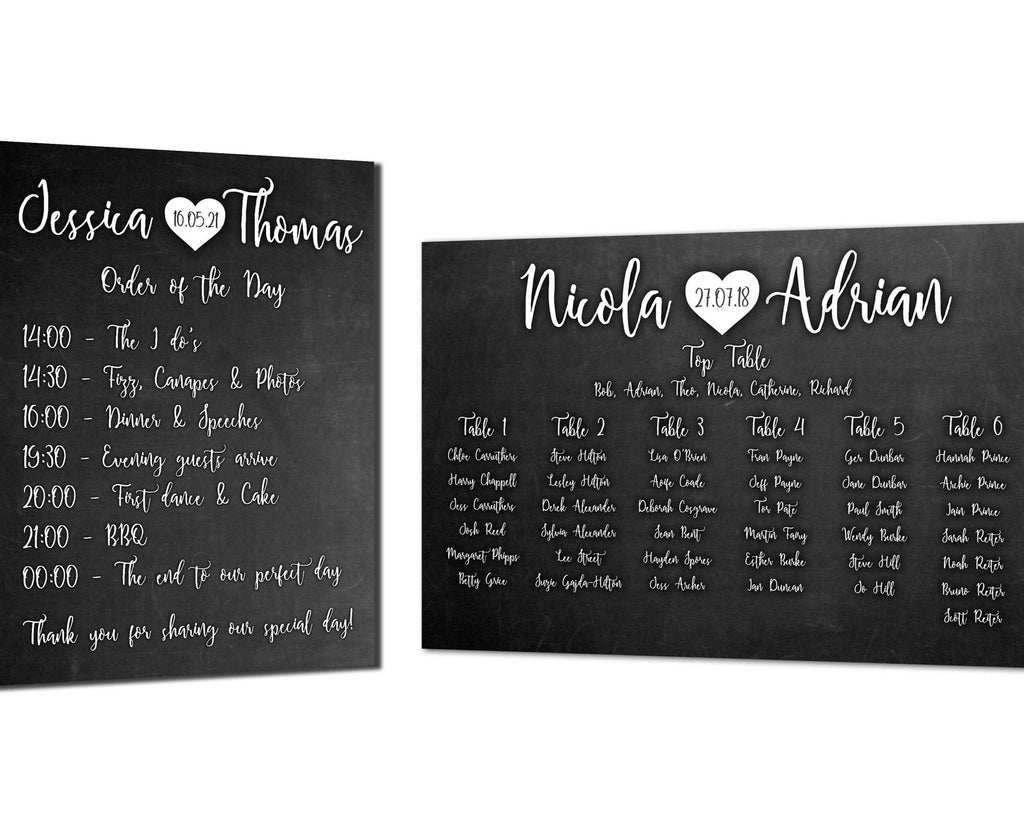 Jessica 16.05.21 Thomas
Order of the Day
14:00 - The I do's
14:30 - Fizz, Canapes & Photos
16:00 - Dinner & Speeches
19:30 - Evening guests arrive
20:00 - First dance & Cake
21:00 - BBQ
00:00 - The end to our perfect day
Thank you for sharing our special day!
Nicola 27.07.18 Adrian
Top Table
Bob, Adrian, Theo, Nicola, Catherine, Richard
Table 1
Chloe Carruthers
Harry Chappell
Jess Carruthers
Josh Reed
Margaret Phipps
Betty Grice
Table 2
Steve Hilton
Lesley Hilton
Derek Alexander
Sylvia Alexander
Lee Street
Suzie Gajda-Hilton
Table 3
Lisa O'Brien
Aoife Coade
Deborah Cosgrave
Jean Bent
Hayden Spores
Jess Archer
Table 4
Fran Payne
Jeff Payne
Tor Pate
Martin Fairy
Esther Burke
Ian Duncan
Table 5
Ger Dunbar
Jane Dunbar
Paul Smith
Wendy Burke
Steve Hill
Jo Hill
Table 6
Hannah Prince
Archie Prince
Iain Prince
Sarah Reiter
Noah Reiter
Bruno Reiter
Scott Reiter